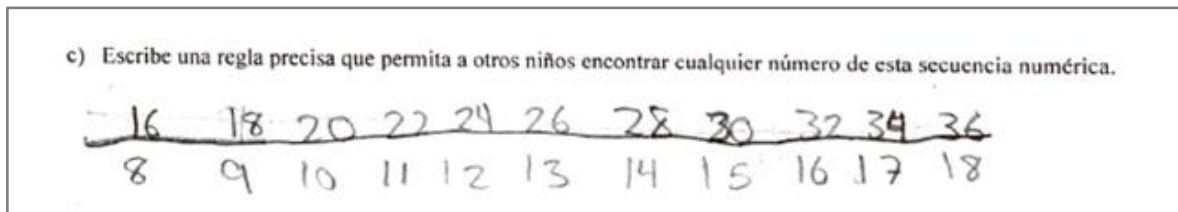 c) Escribe una regla precisa que permita a otros niños encontrar cualquier número de esta secuencia numérica.
16 18 20 22 24 26 28 30 32 34 36
8 9 10 11 12 13 14 15 16 17 18